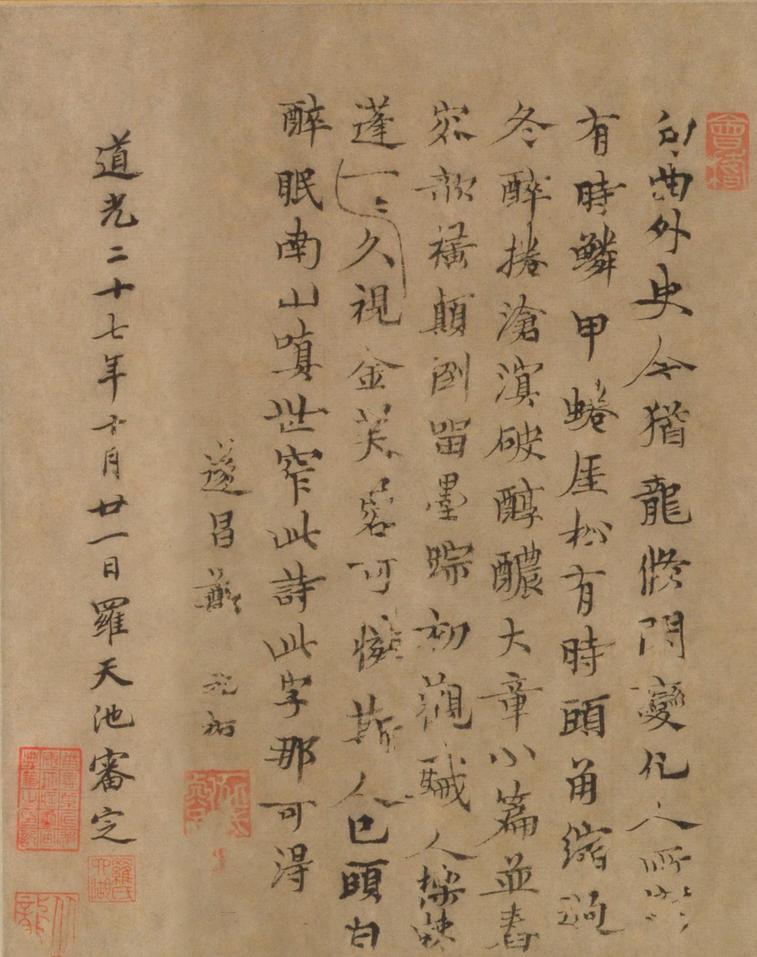 曲外史今猶龍倏閃變化人所
有時鱗甲蜷厓松有時頭角縮
冬醉捲滄溟破醇醲大章小篇並舂
欹橫顛倒留墨踪初觀賊人
蓬一〻久視金芙蓉可憐斯人已頭白
醉眠南山嗔世窄此詩此字那可得
遂昌鄭元祐
道光二十七年十月廿一日羅天池審定